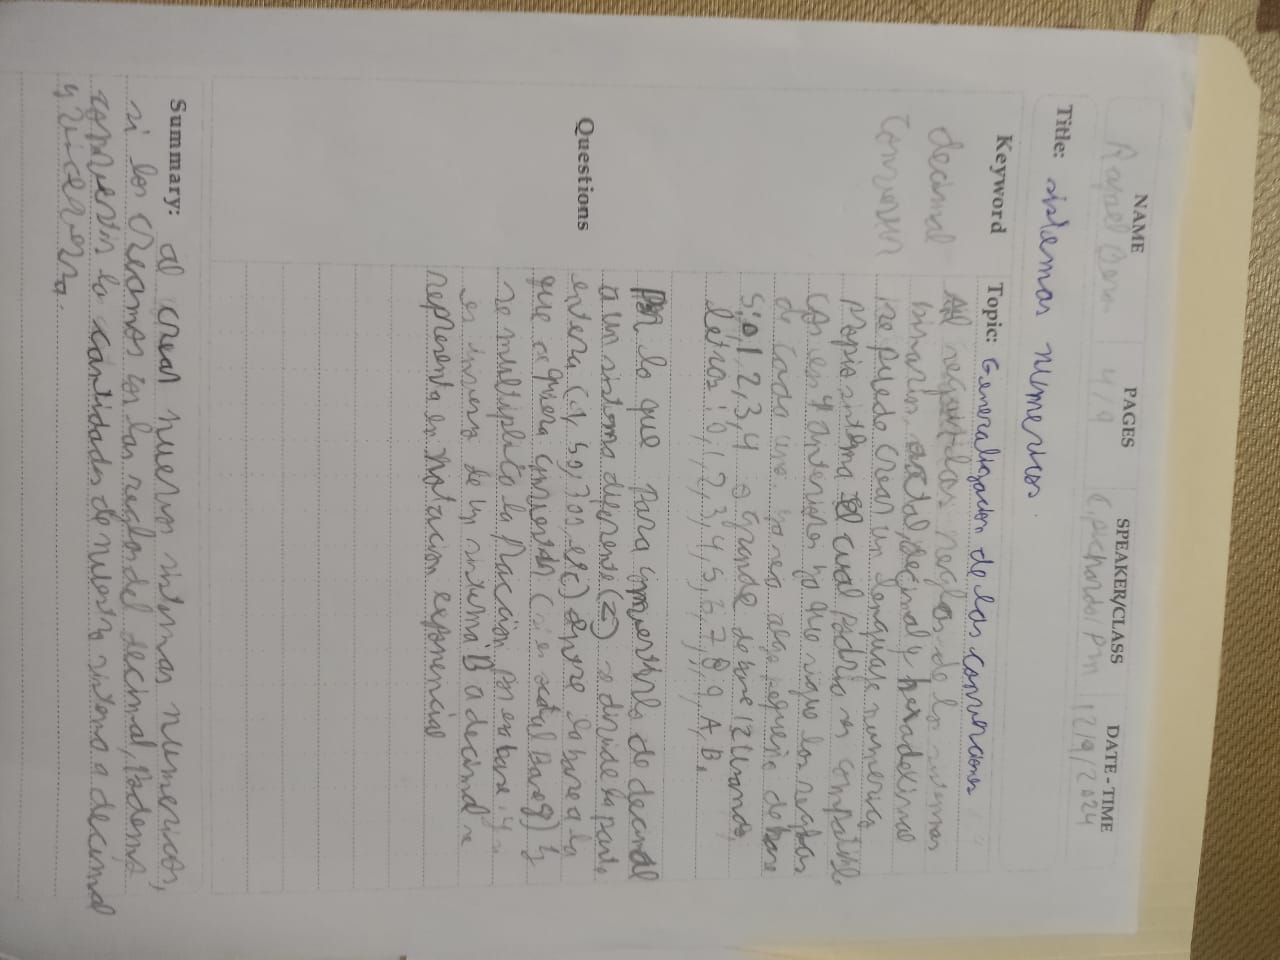 NAME
PAGES
SPEAKER/CLASS
DATE - TIME
Rafael
4/9
12/9/2024
Title: sistemas numericos.
Keyword
Topic: Generalizacion de las conversiones
decimal
conversion
Al reglas de los sistemas
binarios, octal, decimal y hexadecimal
se puede crear un lenguaje numerico
propio sistema el cual podria ser compatible
con los 4 anteriores ya que sigue las reglas
de cada uno, ya sea algo pequeño de base
5: 0 1, 2, 3, 4 o grande de base 12 usando
letras: 0, 1, 2, 3, 4, 5, 6, 7, 8, 9, A, B.
Questions
Por lo que para convertirlo de decimal
a un sistema diferente (Z) se divide la parte
entera (ej 50, 700, etc) entre la base a la
que se quiera convertir (si es octal Base 8) y
se multiplica la fraccion por esa base, y si
es inverso de un sistema B a decimal se
representa en notacion exponencial
Summary: al crear nuevos sistemas numericos,
si los creamos con las reglas del decimal, Podemos
convertir la cantidades de nuestro sistema a decimal
y viceversa.